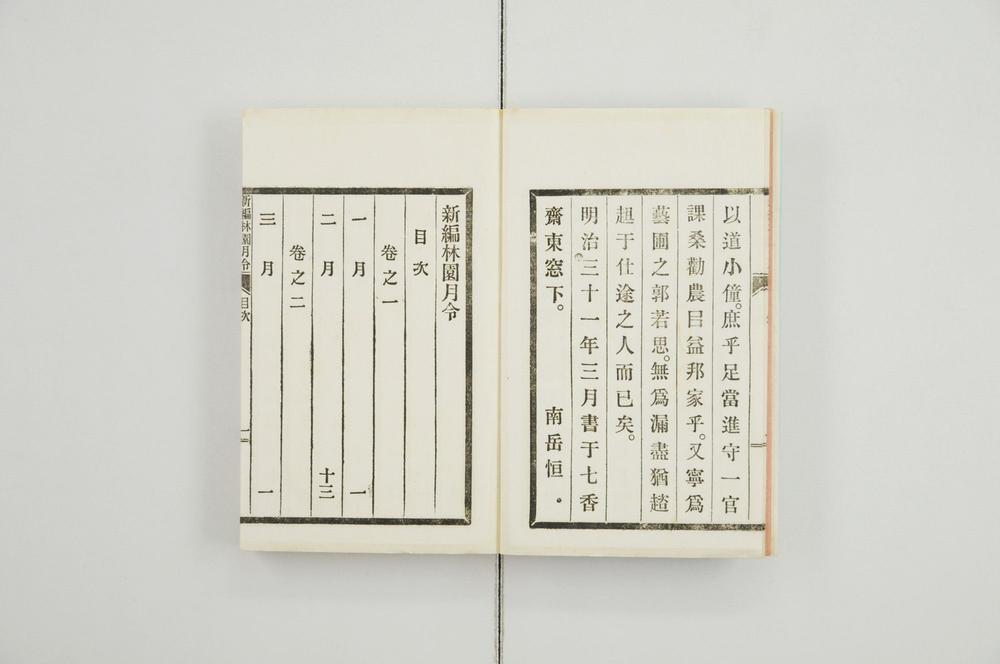 以道小僮。庶乎足當進守一官
課桑勸農㠯益邦家乎。又寧爲
藝圃之郭若思。無爲漏盡猶趦
趄于仕途之人而已矣。
明治三十一年三月書于七香
齋東窓下。 南岳恒
新編林園月令
目次
卷之一
一月 一
二月 十三
卷之二
三月 一
新編林園月令 目次 一